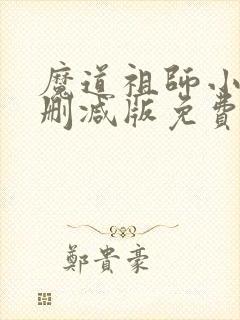 魔道祖師小
刪減版免費
鄭貴豪